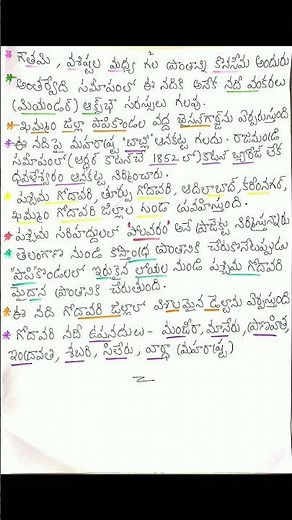 గౌతమి, వశిష్టల మధ్య గల ప్రాంతాన్ని కోనసీమ అందురు
అంతర్వేది సమీపంలో ఈ నదికి అనేక నదీ వంకరలు
(మియాండర్) ఆక్స్‌బౌ సరస్సులు గలవు.
ఖమ్మం జిల్లా పాపికొండల వద్ద బైసన్‌గార్జ్‌ను ఏర్పరుస్తుంది
ఈ నది పై మహారాష్ట్ర ఆనకట్ట గలదు. రాజమండ్రి
సమీపంలో (ఆర్థర్ కాటన్‌చే 1852 లో) కాటన్ బ్యారేజ్ లేక
ధవళేశ్వరం ఆనకట్ట నిర్మించారు.
పశ్చిమ గోదావరి, తూర్పు గోదావరి, ఆదిలాబాద్, కరీంనగర్,
ఖమ్మం గోదావరి జిల్లాల గుండా ప్రవహిస్తుంది.
పశ్చిమ సరిహద్దులలో పోలవరం అనే ప్రాజెక్ట్ నిర్మిస్తున్నారు
తెలంగాణ నుండి కోస్తాంధ్ర ప్రాంతానికి చేరుకొనేటప్పుడు
పాపికొండలలో ఇరుకైన లోయల నుండి పశ్చిమ గోదావరి
మైదాన ప్రాంతానికి చేరుతుంది.
ఈ నది గోదావరి జిల్లాలో విశాలమైన డెల్టాను ఏర్పరుస్తుంది
గోదావరి నదీ ఉపనదులు - మంజీర, మానేరు, ప్రాణహిత,
ఇంద్రావతి, శబరి, సీలేరు, వార్ధా (మహారాష్ట్ర)